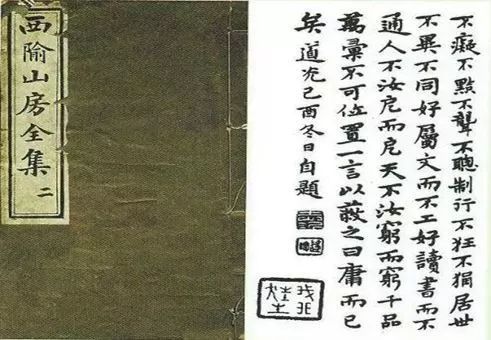 西隃山房全集 二
不癡不黠不聾不聰制行不狂不狷居世
不異不同好屬文而不工好讀書而不
通人不汝戹而戹天不汝窮而窮千品
萬彙不可位置一言以蔽之曰庸而已
矣道光己酉冬日自題